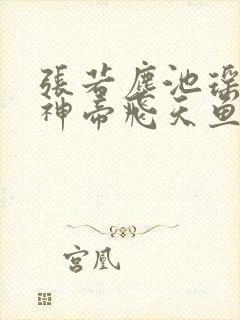 張若塵池瑤
神帝飛天魚
宮凰